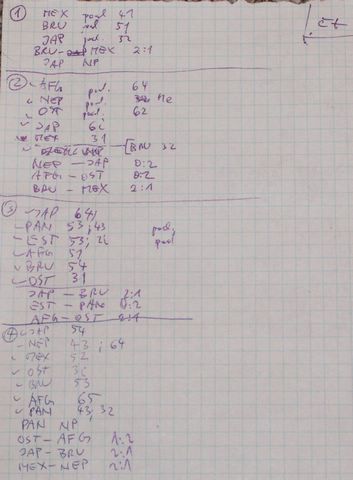 ① MEX pod. 41
BRU pod. 51
JAP pod. 52
BRU - MEX 2:1
JAP NP
② AFG pod. 64
NEP pod. Ne
OST pod. 62
JAP 6i
MEX 31
BRU 32
NEP - JAP 0:2
AFG - OST 0:2
BRU - MEX 2:1
③ JAP 64
PAN 53, 43 pod.
EST 53, 2i pod
AFG 51
BRU 54
OST 31
JAP - BRU 2:1
EST - PAN 0:2
AFG - OST 2:1
④ JAP 54
NEP 43; 64
MEX 52
OST 3i
BRU 53
AFG 65
PAN 43, 32
PAN NP
OST - AFG 1:2
JAP - BRU 2:1
MEX - NEP 2:1